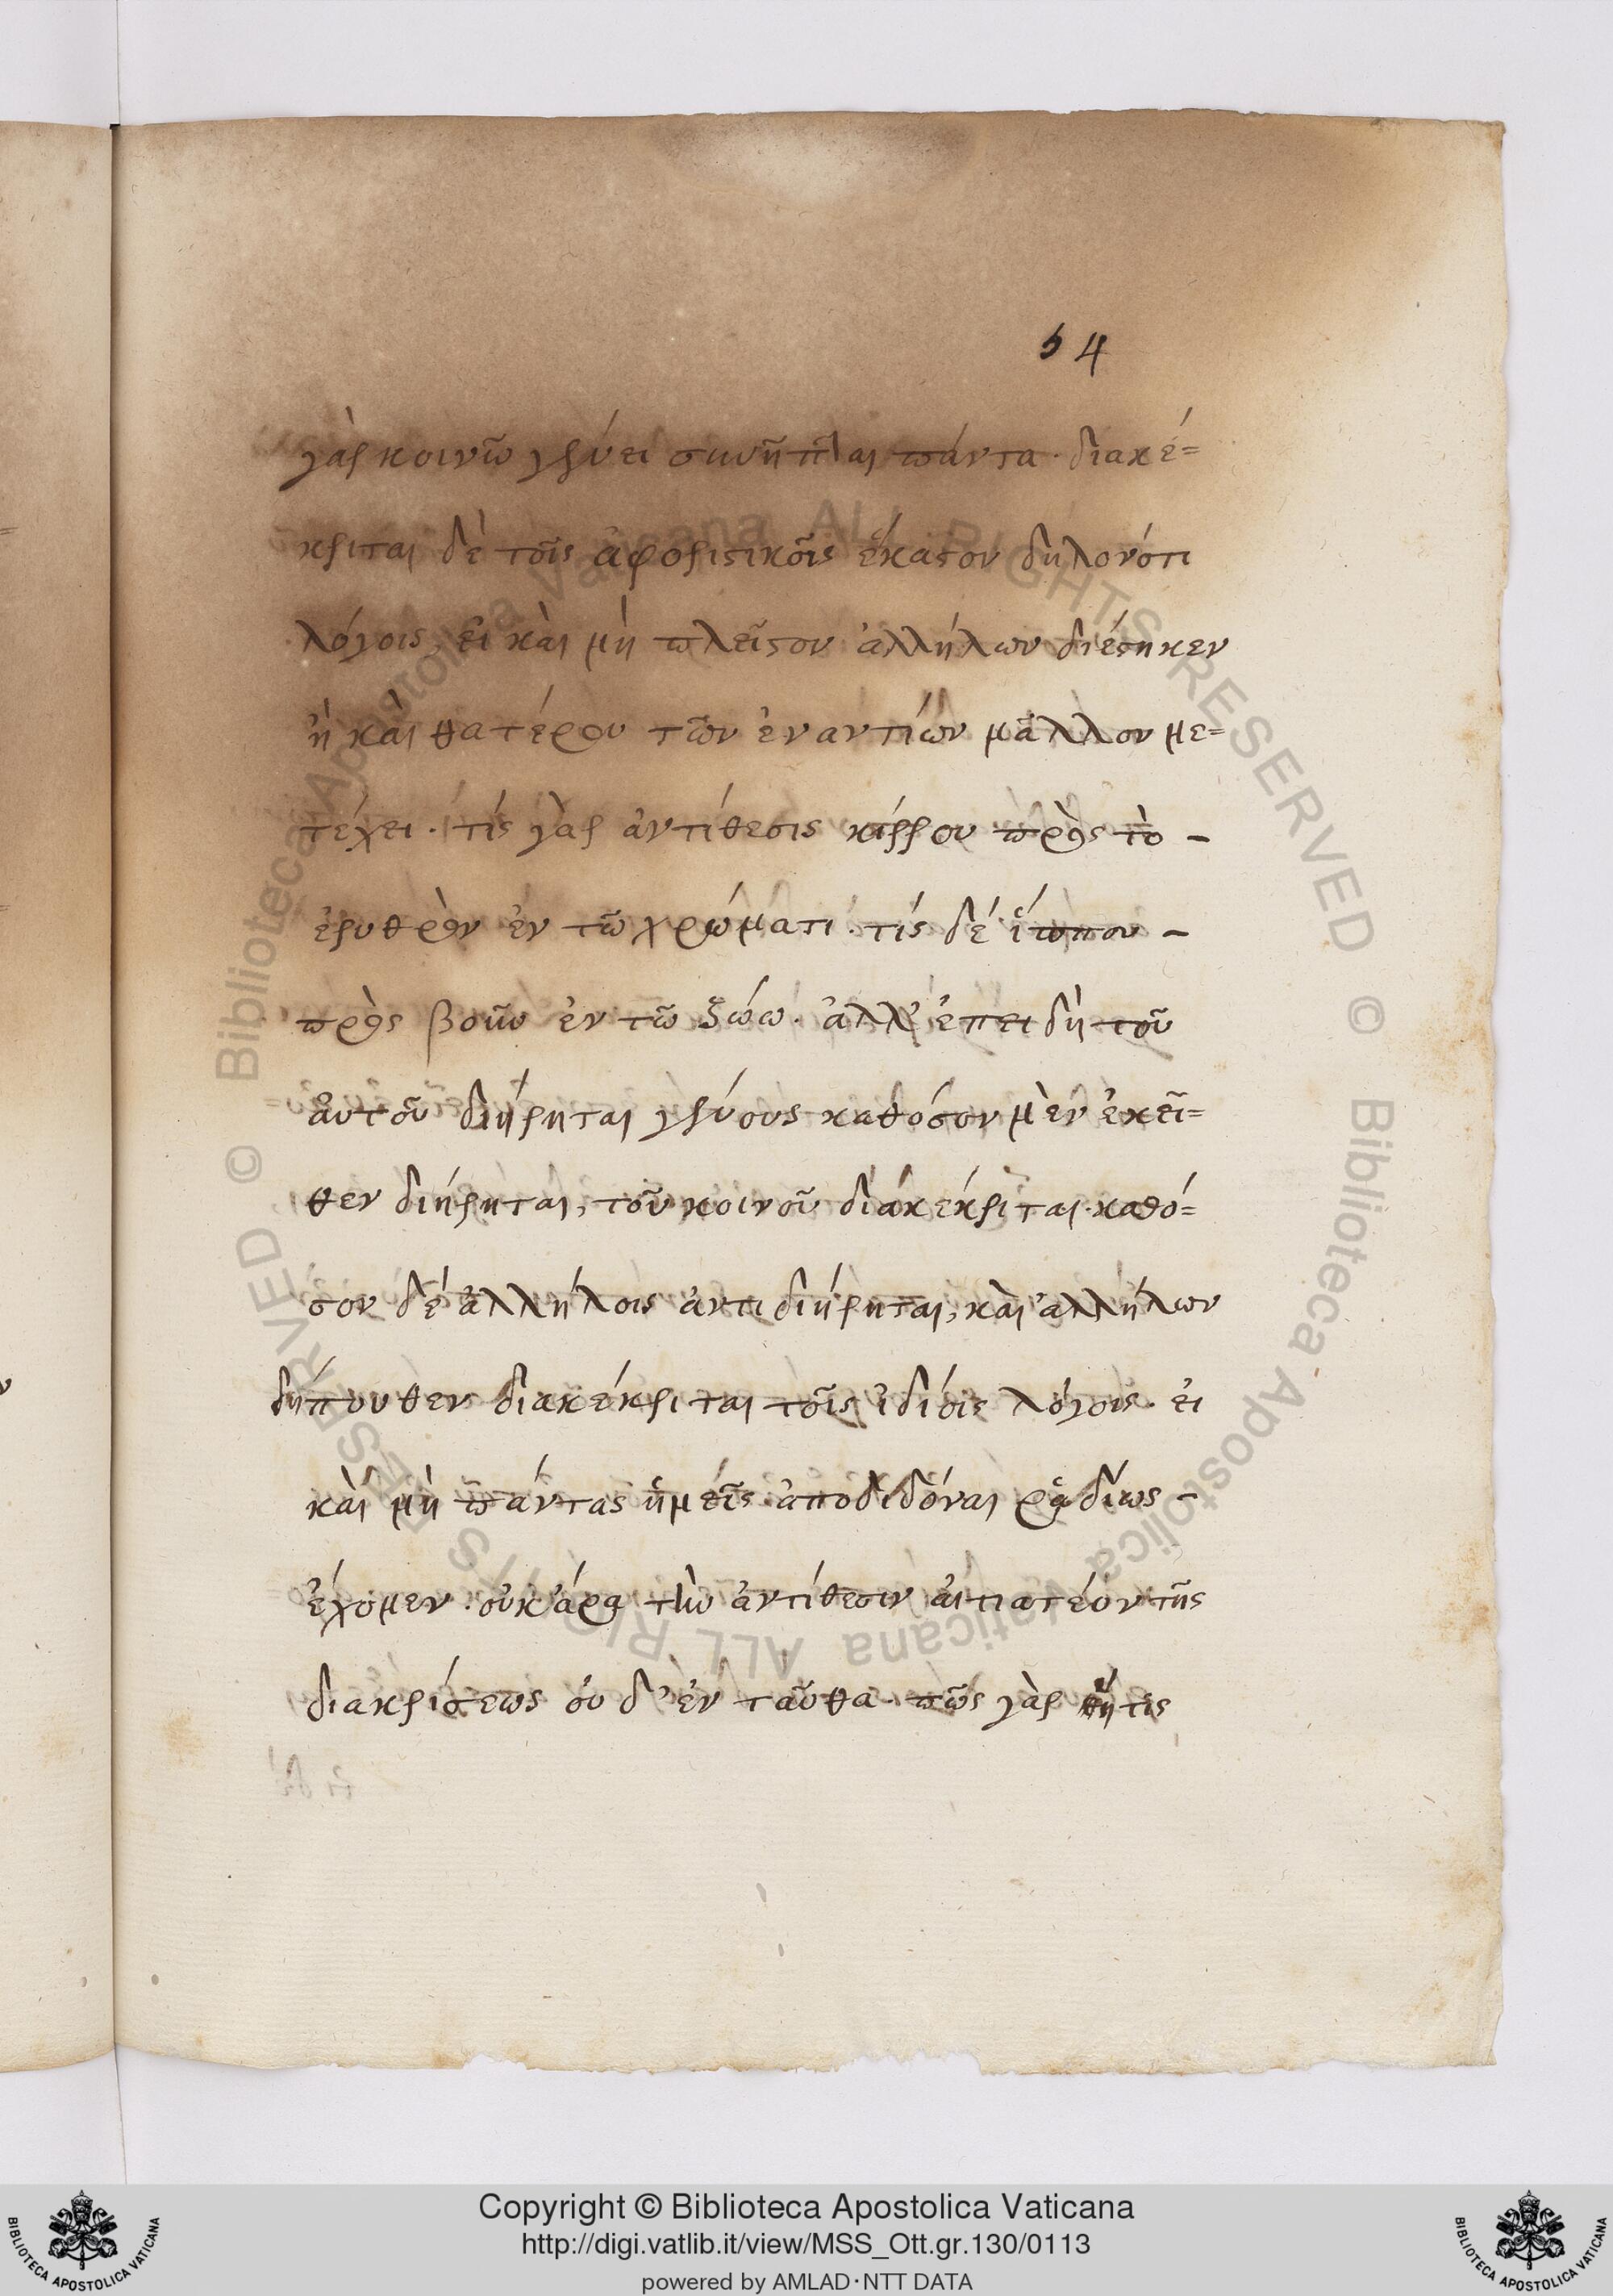 54
γὰρ κοινῶ γένει συνῆπται πάντα· διακέ=
κριται δὲ τοῖς ἀφοριστικοῖς ἕκαστον δηλονότι
λόγοις, εἰ καὶ μὴ πλεῖστον ἀλλήλων διέστηκεν
ἢ καὶ θατέρου τῶν ἐναντίων μᾶλλον με=
τέχει· τίς γὰρ ἀντίθεσις κίρρου πρὸς τὸ –
ἐρυθρὸν ἐν τῶ χρώματι· τίς δέ ἵππου –
πρὸς βοῦν ἐν τῶ ζώω· ἀλλ' ἐπειδὴ τοῦ
αὐτοῦ διήρηται γένους καθόσον μὲν ἐκεῖ=
θεν διήρηται, τοῦ κοινοῦ διακέκριται· καθό=
σον δέ ἀλλήλοις ἀντιδιήρηται, καὶ ἀλλήλων
δήπουθεν διακέκριται τοῖς ἰδίοις λόγοις· εἰ
καὶ μὴ πάντας ἡμεῖς ἀποδιδόναι ῥαδίως –
ἔχομεν· οὐκ ἄρα τὴν ἀντίθεσιν αἰτιατέον τῆς
διακρίσεως οὐδ' ἐνταῦθα· πῶς γὰρ ἥτις
Copyright © Biblioteca Apostolica Vaticana
http://digi.vatlib.it/view/MSS_Ott.gr.130/0113
powered by AMLAD·NTT DATA
BIBLIOTECA APOSTOLICA VATICANA
BIBLIOTECA APOSTOLICA VATICANA
© Biblioteca Apostolica Vaticana ALL RIGHTS RESERVED
© Biblioteca Apostolica Vaticana ALL RIGHTS RESERVED